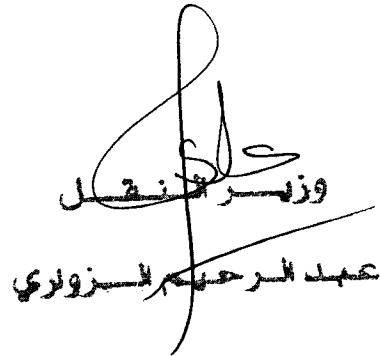 وزير النقل
عبد الرحيم الزواري